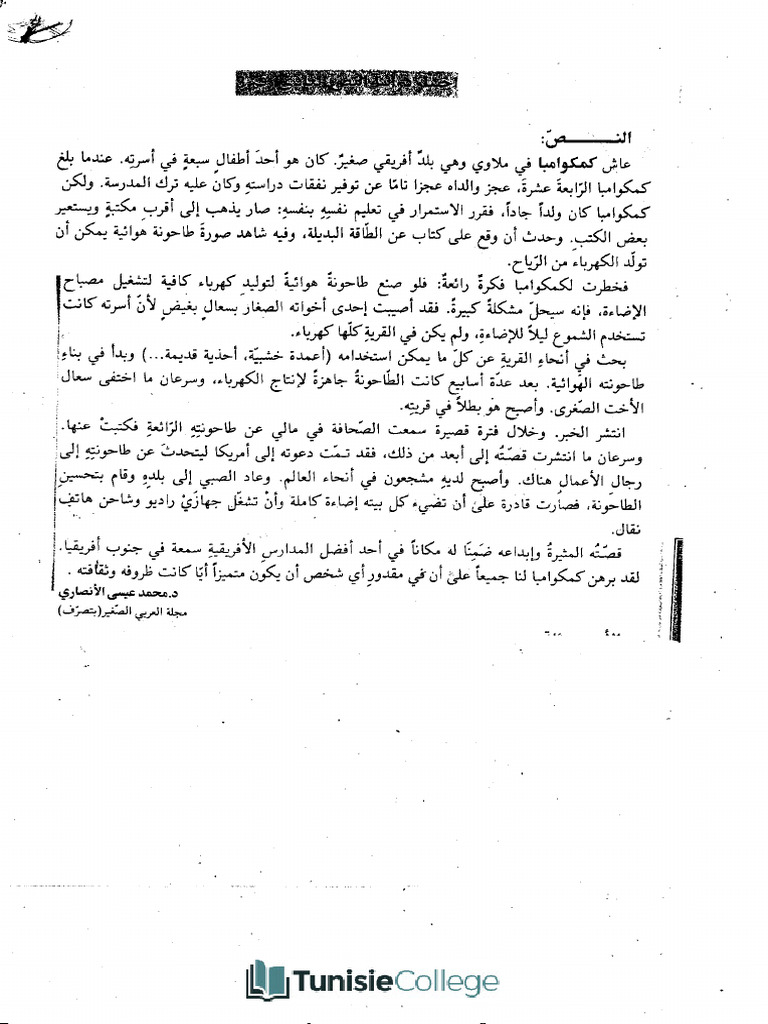 النــــــصّ:
عاش كمكوامبا في ملاوي وهي بلدٌ أفريقي صغيرٌ. كان هو أحدَ أطفال سبعةٍ في أسرتِه. عندما بلغ
كمكوامبا الرّابعةَ عشرةَ، عجز والداه عجزا تامّا عن توفير نفقات دراستهِ وكان عليه ترك المدرسة. ولكن
كمكوامبا كان ولداً جاداً، فقرر الاستمرار في تعليم نفسِهِ بنفسِهِ: صار يذهب إلى أقربِ مكتبةٍ ويستعير
بعض الكتبِ. وحدث أن وقع على كتاب عن الطّاقة البديلة، وفيه شاهد صورةَ طاحونة هوائية يمكن أن
تولّد الكهرباء من الرّياح.
فخطرت لكمكوامبا فكرةٌ رائعةٌ: فلو صنع طاحونةً هوائيةً لتوليدِ كهرباء كافية لتشغيل مصباح
الإضاءة، فإنه سيحلّ مشكلةً كبيرةً. فقد أصيبت إحدى أخواته الصغار بسعالٍ بغيضٍ لأنّ أسرته كانت
تستخدم الشموع ليلاً للإضاءةِ، ولم يكن في القريةِ كلّها كهرباء.
بحث في أنحاء القريةِ عن كلّ ما يمكن استخدامه (أعمدة خشبيّة، أحذية قديمة...) وبدأ في بناءِ
طاحونته الهوائية. بعد عدّة أسابيع كانت الطّاحونةُ جاهزةً لإنتاج الكهرباء، وسرعان ما اختفى سعال
الأخت الصّغرى. وأصبح هو بطلاً في قريتِه.
انتشر الخبر. وخلال فترة قصيرة سمعت الصّحافة في مالي عن طاحونتِهِ الرّائعةِ فكتبتْ عنها.
وسرعان ما انتشرت قصّتهُ إلى أبعد من ذلك، فقد تـمّت دعوته إلى أمريكا ليتحدث عن طاحونتِهِ إلى
رجال الأعمال هناك. وأصبح لديهِ مشجعون في أنحاء العالم. وعاد الصبي إلى بلدِهِ وقام بتحسينِ
الطاحونة، فصارت قادرة على أن تضيء كل بيته إضاءة كاملة وأنْ تشغّل جهازيْ راديو وشاحن هاتف
نقال.
قصّتُه المثيرةُ وإبداعه ضَمِنَا له مكاناً في أحد أفضل المدارسِ الأفريقيةِ سمعة في جنوب أفريقيا.
لقد برهن كمكوامبا لنا جميعاً على أن في مقدورِ أي شخص أن يكون متميزاً أيّا كانت ظروفه وثقافته .
د.محمد عيسى الأنصاري
مجلة العربي الصّغير(بتصرّف)
TunisieCollege